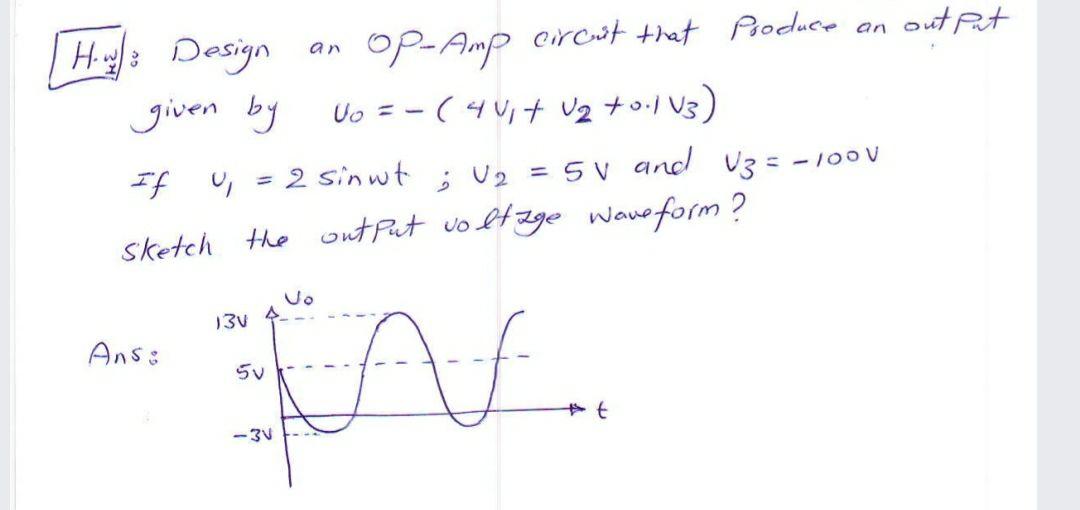 H.W: Design an OP-Amp circuit that Produce an output
given by Vo = - ( 4 V1 + V2 + 0.1 V3 )
If V1 = 2 sin wt ; V2 = 5 V and V3 = - 100 V
sketch the output voltage waveform ?
Vo
13V
Ans:
5V
t
-3V